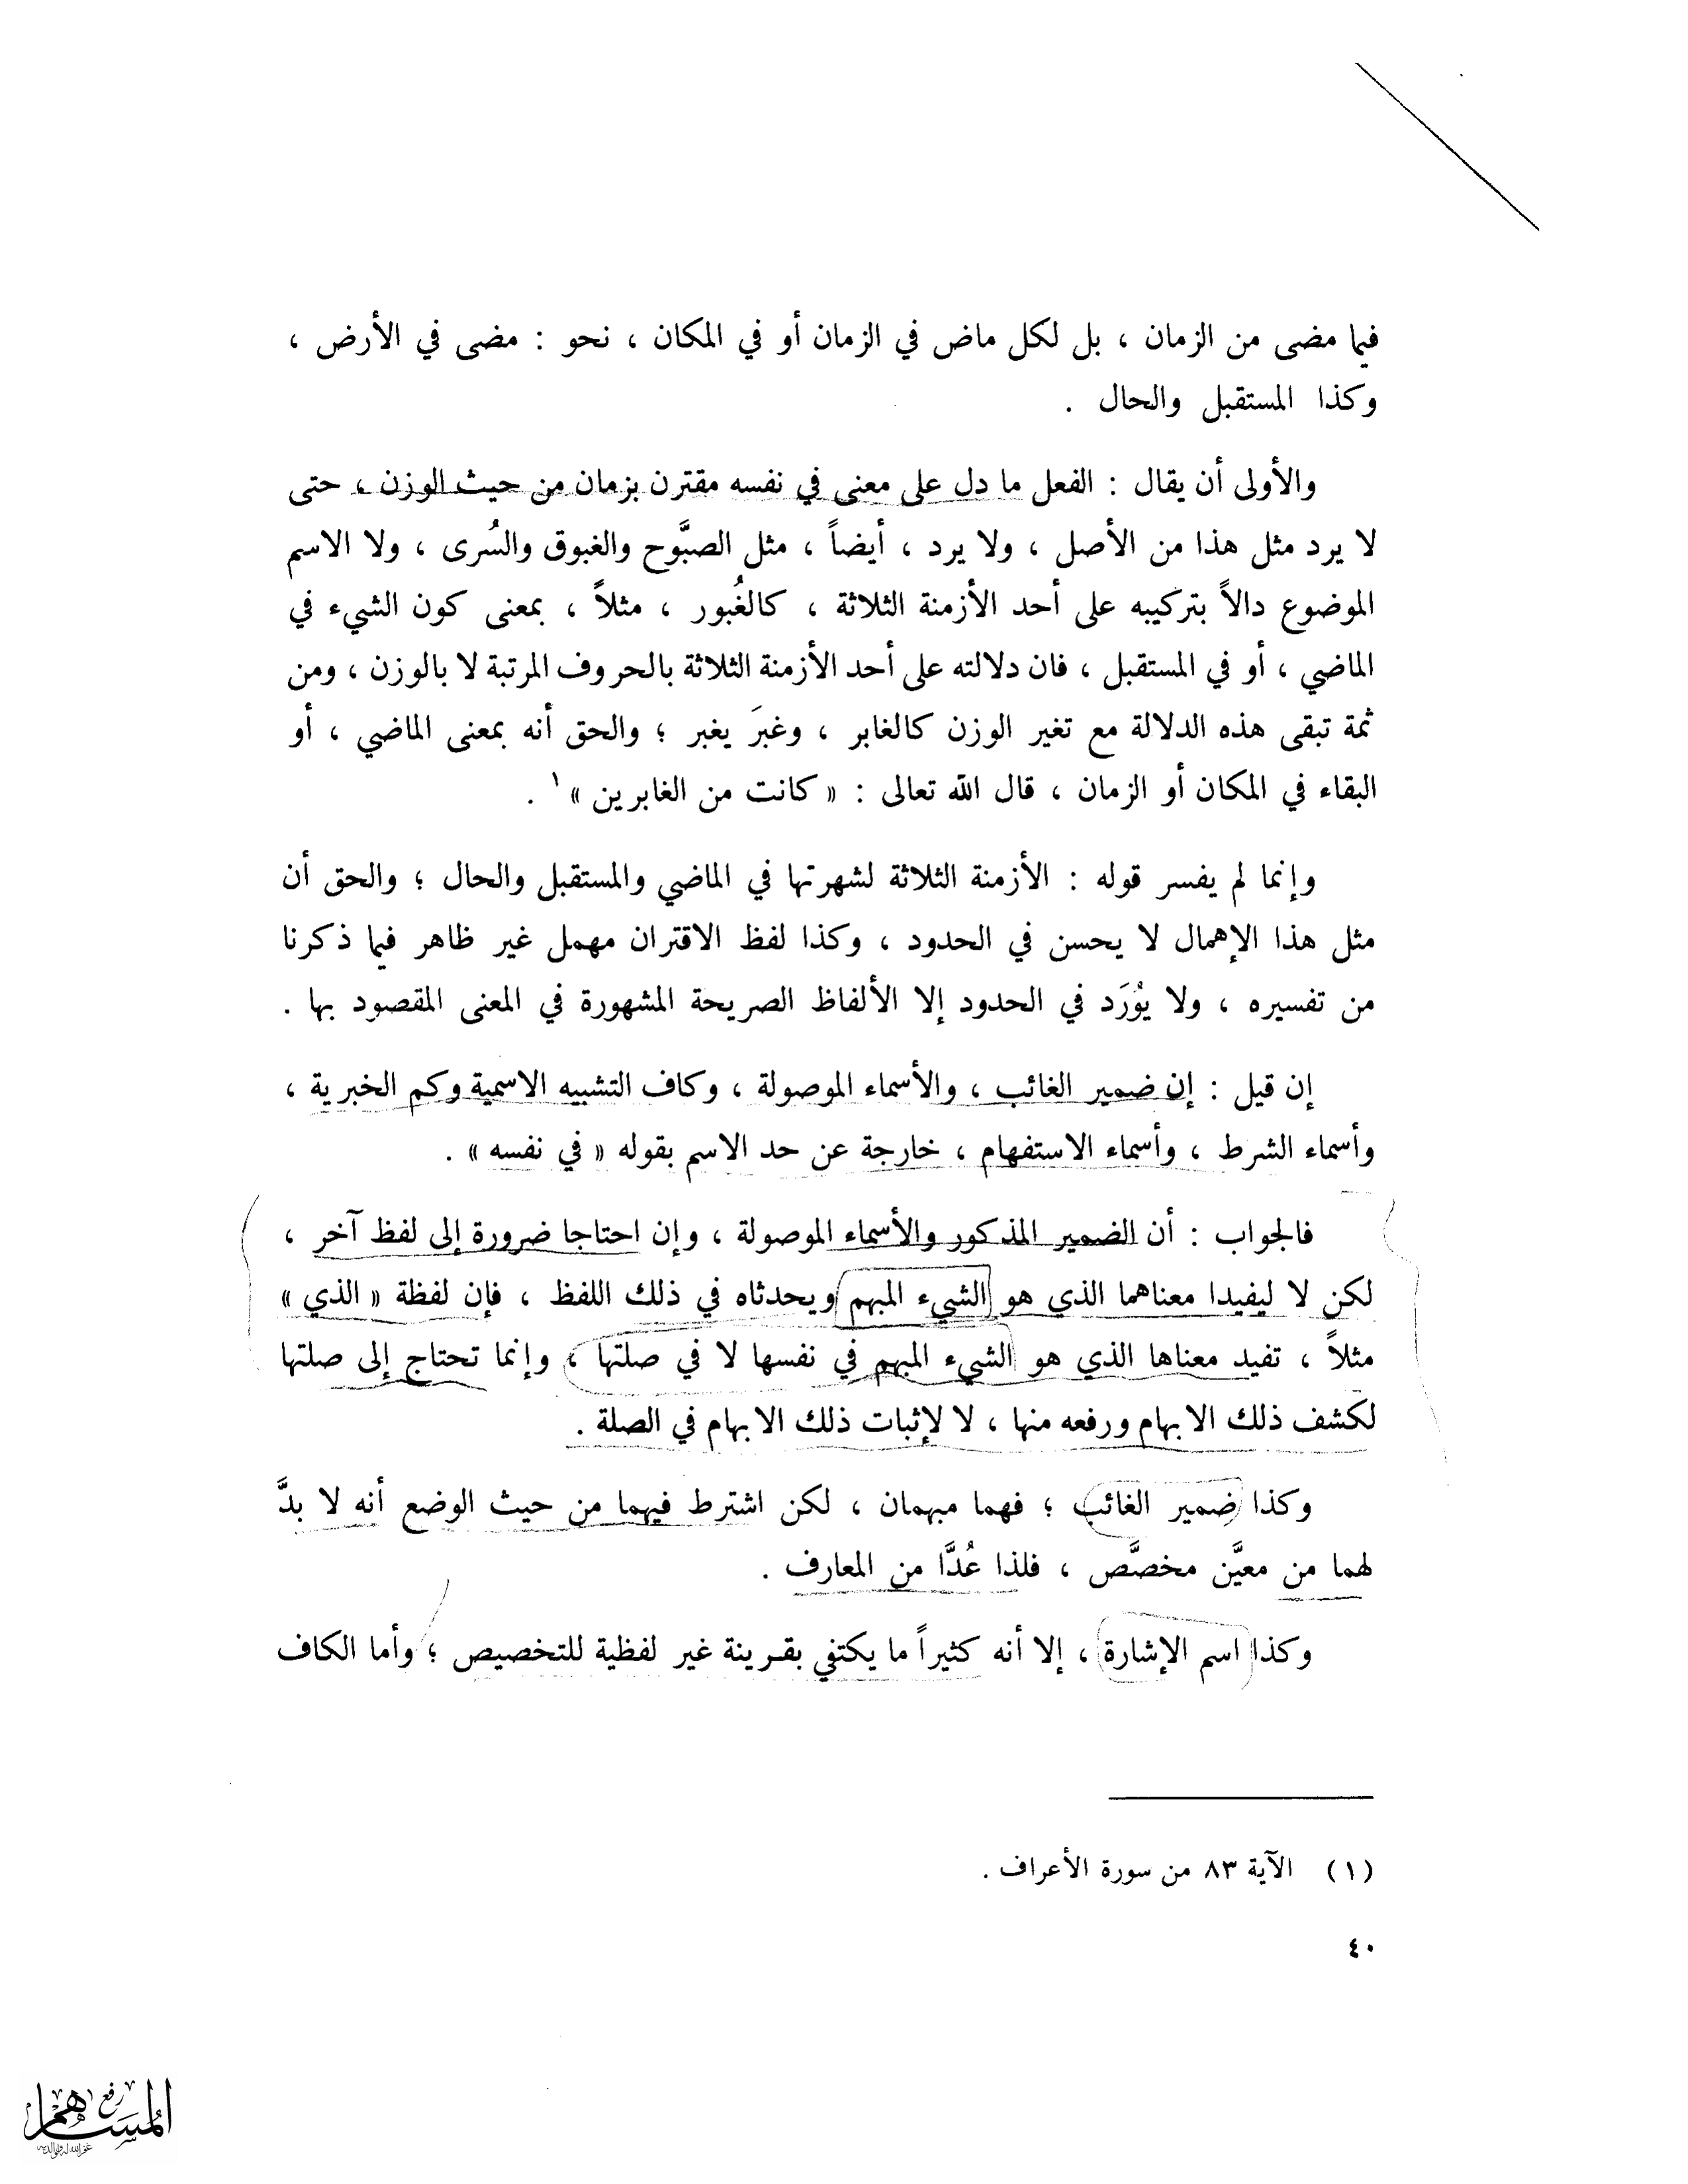 فيما مضى من الزمان ، بل لكل ماض في الزمان أو في المكان ، نحو : مضى في الأرض ،
وكذا المستقبل والحال .
والأولى أن يقال : الفعل ما دل على معنى في نفسه مقترن بزمان من حيث الوزن ، حتى
لا يرد مثل هذا من الأصل ، ولا يرد ، أيضاً ، مثل الصبَّوح والغبوق والسُرى ، ولا الاسم
الموضوع دالاً بتركيبه على أحد الأزمنة الثلاثة ، كالغُبور ، مثلاً ، بمعنى كون الشيء في
الماضي ، أو في المستقبل ، فان دلالته على أحد الأزمنة الثلاثة بالحروف المرتبة لا بالوزن ، ومن
ثمة تبقى هذه الدلالة مع تغير الوزن كالغابر ، وغبرَ يغبر ؛ والحق أنه بمعنى الماضي ، أو
البقاء في المكان أو الزمان ، قال الله تعالى : « كانت من الغابرين » ١ .
وإنما لم يفسر قوله : الأزمنة الثلاثة لشهرتها في الماضي والمستقبل والحال ؛ والحق أن
مثل هذا الإهمال لا يحسن في الحدود ، وكذا لفظ الاقتران مهمل غير ظاهر فيما ذكرنا
من تفسيره ، ولا يُورَد في الحدود إلا الألفاظ الصريحة المشهورة في المعنى المقصود بها .
إن قيل : إن ضمير الغائب ، والأسماء الموصولة ، وكاف التشبيه الاسمية وكم الخبرية ،
وأسماء الشرط ، وأسماء الاستفهام ، خارجة عن حد الاسم بقوله « في نفسه » .
فالجواب : أن الضمير المذكور والأسماء الموصولة ، وإن احتاجا ضرورة إلى لفظ آخر ،
لكن لا ليفيدا معناهما الذي هو الشيء المبهم ويحدثاه في ذلك اللفظ ، فإن لفظة « الذي »
مثلاً ، تفيد معناها الذي هو الشيء المبهم في نفسها لا في صلتها ، وإنما تحتاج إلى صلتها
لكشف ذلك الابهام ورفعه منها ، لا لإثبات ذلك الابهام في الصلة .
وكذا ضمير الغائب ؛ فهما مبهمان ، لكن اشترط فيهما من حيث الوضع أنه لا بدَّ
لهما من معيَّن مخصَّص ، فلذا عُدَّا من المعارف .
وكذا اسم الإشارة ، إلا أنه كثيراً ما يكتفي بقرينة غير لفظية للتخصيص ؛ وأما الكاف
(١) الآية ٨٣ من سورة الأعراف .
٤٠